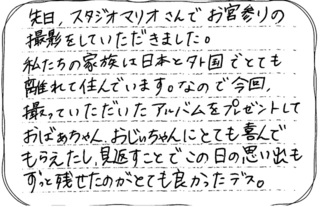 先日，スタジオマリオさんでお宮参りの
撮影をしていただきました。
私たちの家族は日本と外国でとても
離れて住んでいます。なので今回，
撮っていただいたアルバムをプレゼントして
おばあちゃん，おじいちゃんにとても喜んで
もらえたし，見返すことでこの日の思い出も
ずっと残せたのがとても良かったデス。